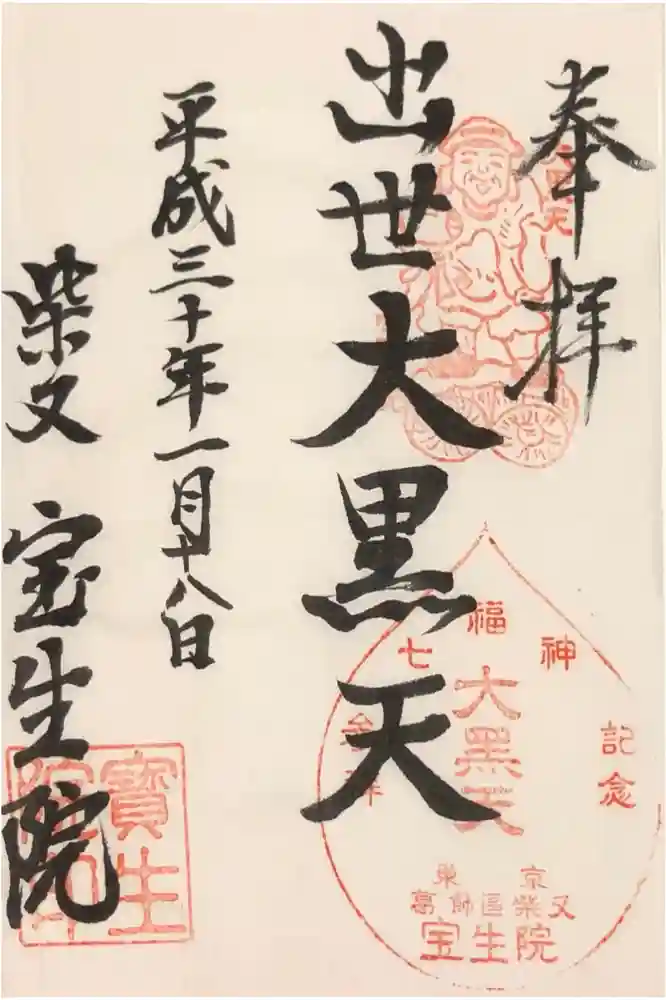 奉拝
出世大黒天
平成三十年一月十八日
柴又 宝生院
七福神
記念
大黑天
東京
葛飾區柴又
宝生院
寶生院印